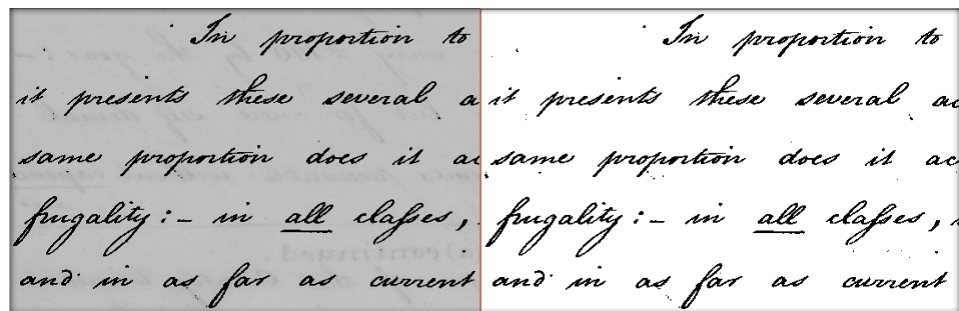 In proportion to
it presents these several
same proportion does it
frugality:– in all claſses,
and in as far as current
In proportion to
it presents these several
same proportion does it
frugality:– in all claſses,
and in as far as current